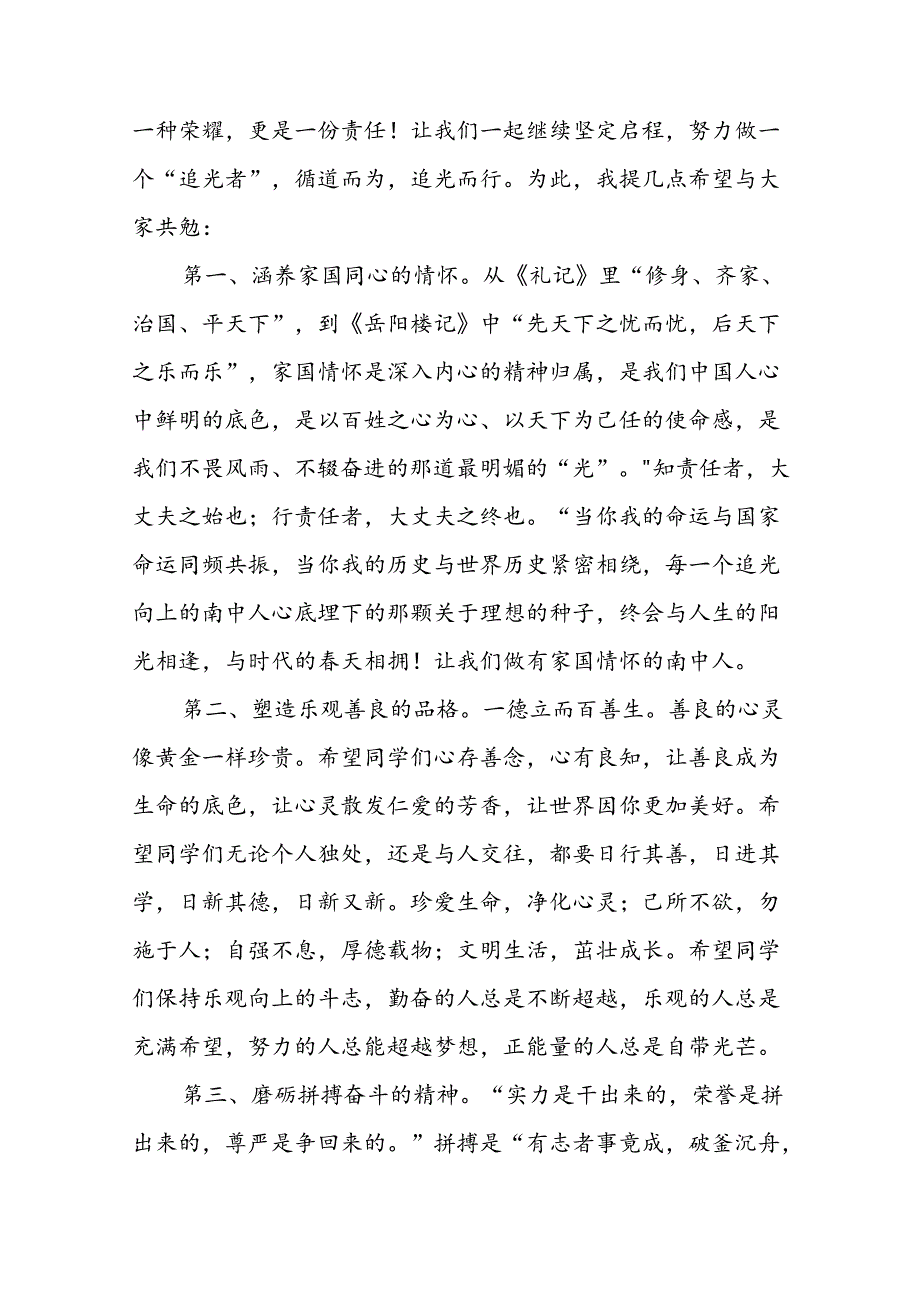 一种荣耀，更是一份责任！让我们一起继续坚定启程，努力做一
个“追光者”，循道而为，追光而行。为此，我提几点希望与大
家共勉：
第一、涵养家国同心的情怀。从《礼记》里“修身、齐家、
治国、平天下”，到《岳阳楼记》中“先天下之忧而忧，后天下
之乐而乐”，家国情怀是深入内心的精神归属，是我们中国人心
中鲜明的底色，是以百姓之心为心、以天下为己任的使命感，是
我们不畏风雨、不辍奋进的那道最明媚的“光”。"知责任者，大
丈夫之始也；行责任者，大丈夫之终也。“当你我的命运与国家
命运同频共振，当你我的历史与世界历史紧密相绕，每一个追光
向上的南中人心底埋下的那颗关于理想的种子，终会与人生的阳
光相逢，与时代的春天相拥！让我们做有家国情怀的南中人。
第二、塑造乐观善良的品格。一德立而百善生。善良的心灵
像黄金一样珍贵。希望同学们心存善念，心有良知，让善良成为
生命的底色，让心灵散发仁爱的芳香，让世界因你更加美好。希
望同学们无论个人独处，还是与人交往，都要日行其善，日进其
学，日新其德，日新又新。珍爱生命，净化心灵；己所不欲，勿
施于人；自强不息，厚德载物；文明生活，茁壮成长。希望同学
们保持乐观向上的斗志，勤奋的人总是不断超越，乐观的人总是
充满希望，努力的人总能超越梦想，正能量的人总是自带光芒。
第三、磨砺拼搏奋斗的精神。“实力是干出来的，荣誉是拼
出来的，尊严是争回来的。”拼搏是“有志者事竟成，破釜沉舟，